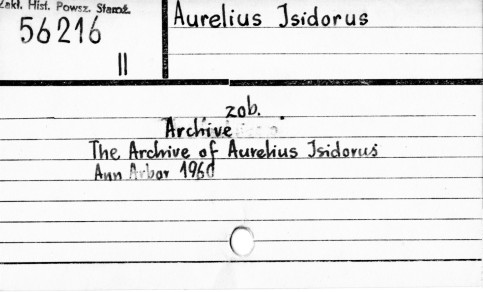 Zakł. Hist. Powsz. Staroż.
56216
II
Aurelius Isidorus
zob.
Archive
The Archive of Aurelius Isidorus
Ann Arbor 1960